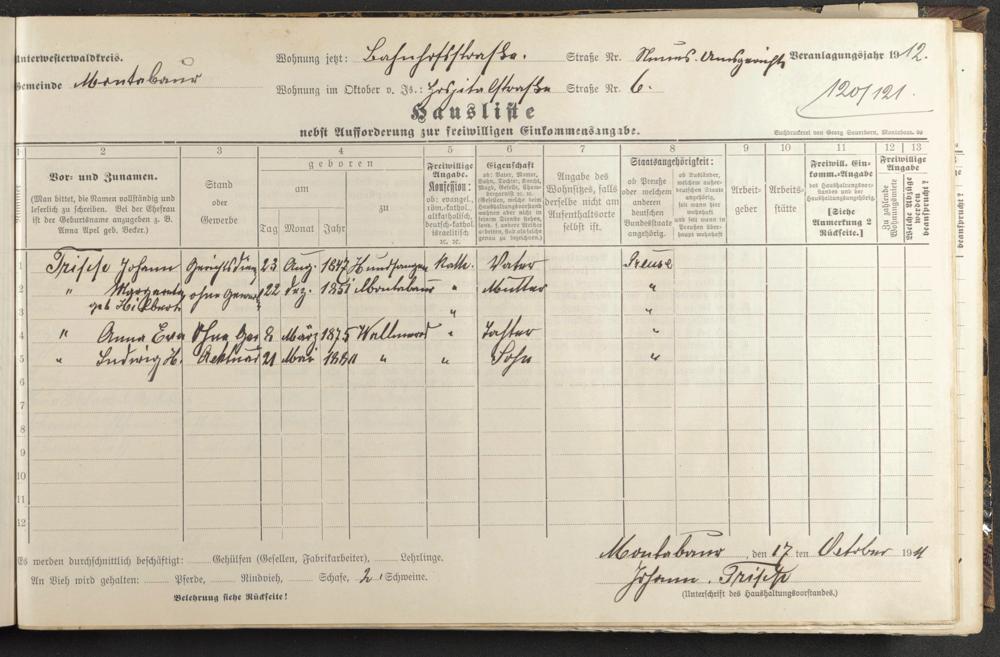 Unterwesterwaldkreis. Wohnung jetzt: Bahnhofsstraße. Straße Nr. Neues Amsgericht Veranlagungsjahr 1912.
Gemeinde Montabaur Wohnung im Oktober v. Js.: Hospitalstraße Straße Nr. 6.
120/121.
Hausliste
nebst Aufforderung zur freiwilligen Einkommensangabe.
Buchdruckerei von Georg Sauerborn, Montabaur.
1 2 3 4 5 6 7 8 9 10 11 12 13
Vor- und Zunamen.
(Man bittet, die Namen vollständig und
leserlich zu schreiben. Bei der Ehefrau
ist der Geburtsname anzugeben z. B.
Anna Apel geb. Becker.)
Stand
oder
Gewerbe
geboren
am
zu
Tag Monat Jahr
Freiwillige
Angabe.
Konfession:
ob: evangel.,
röm.-kathol.,
altkatholisch,
deutsch-kathol.
israelitisch
ꝛc. ꝛc.
Eigenschaft
ob: Vater, Mutter,
Sohn, Tochter, Knecht,
Magd, Geselle, Cham-
bregarnist ꝛc. ꝛc.
(Gesellen, welche beim
Haushaltungsvorstand
wohnen aber nicht in
seinem Dienste stehen,
bezw. f. andere Meister
arbeiten, sind als solche
genau zu bezeichnen.)
Angabe des
Wohnsitzes, falls
derselbe nicht am
Aufenthaltsorte
selbst ist.
Staatsangehörigkeit:
ob Preuße
oder welchem
anderen
deutschen
Bundesstaate
angehörig.
ob Ausländer,
welchem außer-
deutschen Staate
angehörig,
seit wann hier
wohnhaft
und
seit wann in
Preußen über-
haupt wohnhaft
Arbeit-
geber
Arbeits-
stätte
Freiwill. Ein-
komm.-Angabe
des Haushaltungsvor-
standes und der
Haushaltungsangehörig.
[Siehe
Anmerkung 2
Rückseite.]
Freiwillige
Angabe
Zu zahlende
Wohnungsmiete
Welche Abzüge
werden
beansprucht?
1 Frische Johann Gerichtsdien 23 Aug. 1847 Hundsangen Kath. Vater Preuse
2 " Margareta ohne Gewer 22 Dez. 1851 Montabaur " Mutter "
geb Hilbert
3 " "
4 " Anna Eva Ohne Gew 8 März 1875 Wallmerod " Tochter "
5 " Ludwig 21 " " Sohn "
6
7
8
9
10
11
12
Es werden durchschnittlich beschäftigt: Gehülfen (Gesellen, Fabrikarbeiter), Lehrlinge.
An Vieh wird gehalten: Pferde, Rindvieh, Schafe, 2 Schweine.
Belehrung siehe Rückseite!
Montabaur, den 17 ten October 1911
Johann Frische
(Unterschrift des Haushaltungsvorstandes.)
beansprucht?